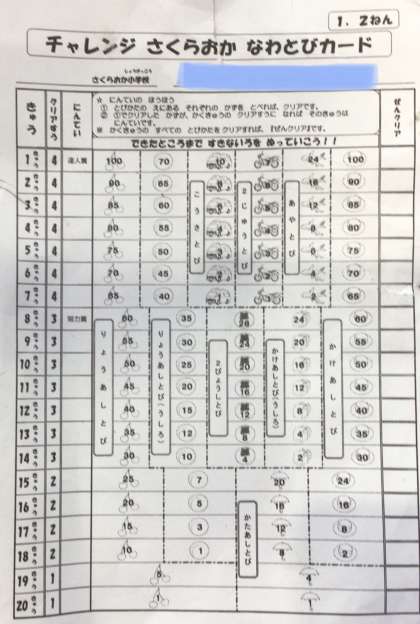 1．2ねん
チャレンジ さくらおか なわとびカード
しょうがっこう
さくらおか小学校
きゅう クリアすう にんてい
☆ にんていの ほうほう
① とびかたの えにある それぞれの かずを とべれば、クリアです。
② ①でクリアした かずが、かくきゅうの クリアすうに なれば そのきゅうは
にんていです。
※ かくきゅうの すべての とびかたを クリアすれば、『ぜんクリア』です。
ぜんクリア
できたところまで すきないろを ぬっていこう！！
1きゅう 4 達人賞 100 70 10 24 100
2きゅう 4 90 65 90
3きゅう 4 85 60 12 85
4きゅう 4 80 55 80
5きゅう 4 75 50 75
6きゅう 4 70 45 4 70
7きゅう 4 65 40 2 65
こうさとび
2じゅうとび
あやとび
8きゅう 3 努力賞 60 35 28 24 60
9きゅう 3 55 30 24 20 55
10きゅう 3 50 25 20 16 50
11きゅう 3 45 20 16 12 45
12きゅう 3 40 15 12 8 40
13きゅう 3 35 12 8 4 35
14きゅう 3 30 10 4 2 30
りょうあしとび
りょうあしとび(うしろ)
2びょうしとび
かけあしとび(うしろ)
かけあしとび
15きゅう 2 25 7 20 24
16きゅう 2 20 5 16 16
17きゅう 2 15 3 12 8
18きゅう 2 10 1 8 2
かたあしとび
19きゅう 1 5 4
20きゅう 1 1 1